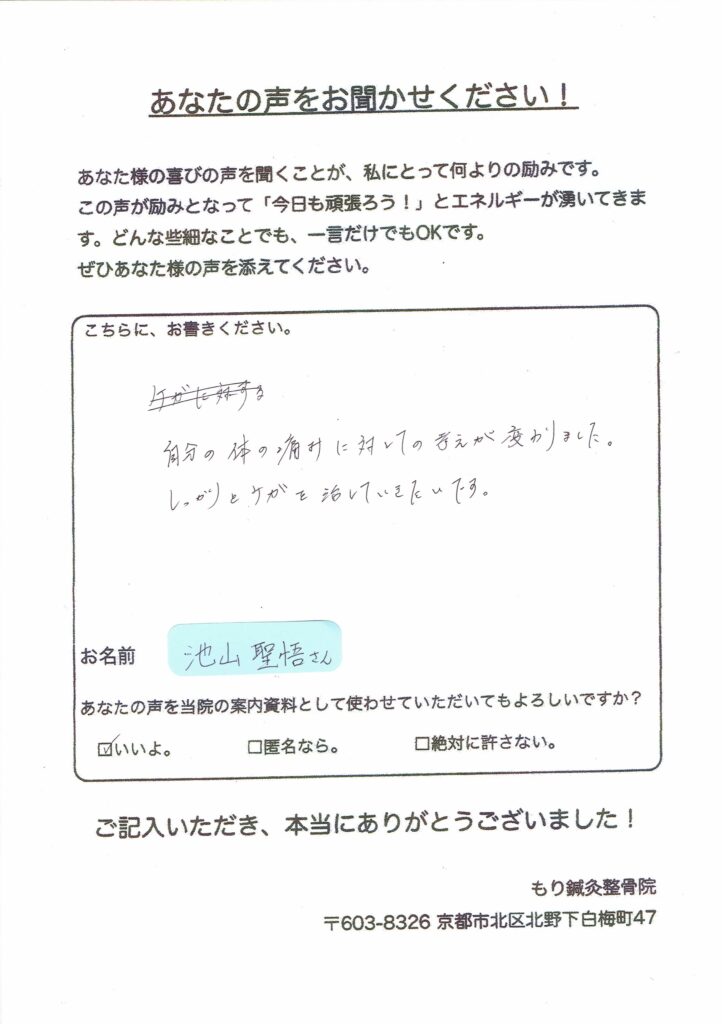 あなたの声をお聞かせください！
あなた様の喜びの声を聞くことが、私にとって何よりの励みです。
この声が励みとなって「今日も頑張ろう！」とエネルギーが湧いてきま
す。どんな些細なことでも、一言だけでもOKです。
ぜひあなた様の声を添えてください。
こちらに、お書きください。
ケガに対する
自分の体の痛みに対しての考えが変わりました。
しっかりとケガを治していきたいです。
お名前 池山 聖悟さん
あなたの声を当院の案内資料として使わせていただいてもよろしいですか？
☑いいよ。 □匿名なら。 □絶対に許さない。
ご記入いただき、本当にありがとうございました！
もり鍼灸整骨院
〒603-8326 京都市北区北野下白梅町47